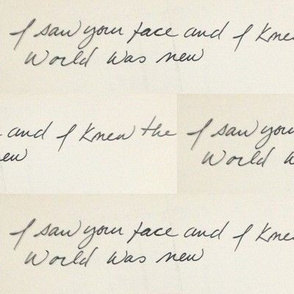 I saw your face and I knew
World was new
and I knew the I saw your
new World w
I saw your face and I knew
World was new